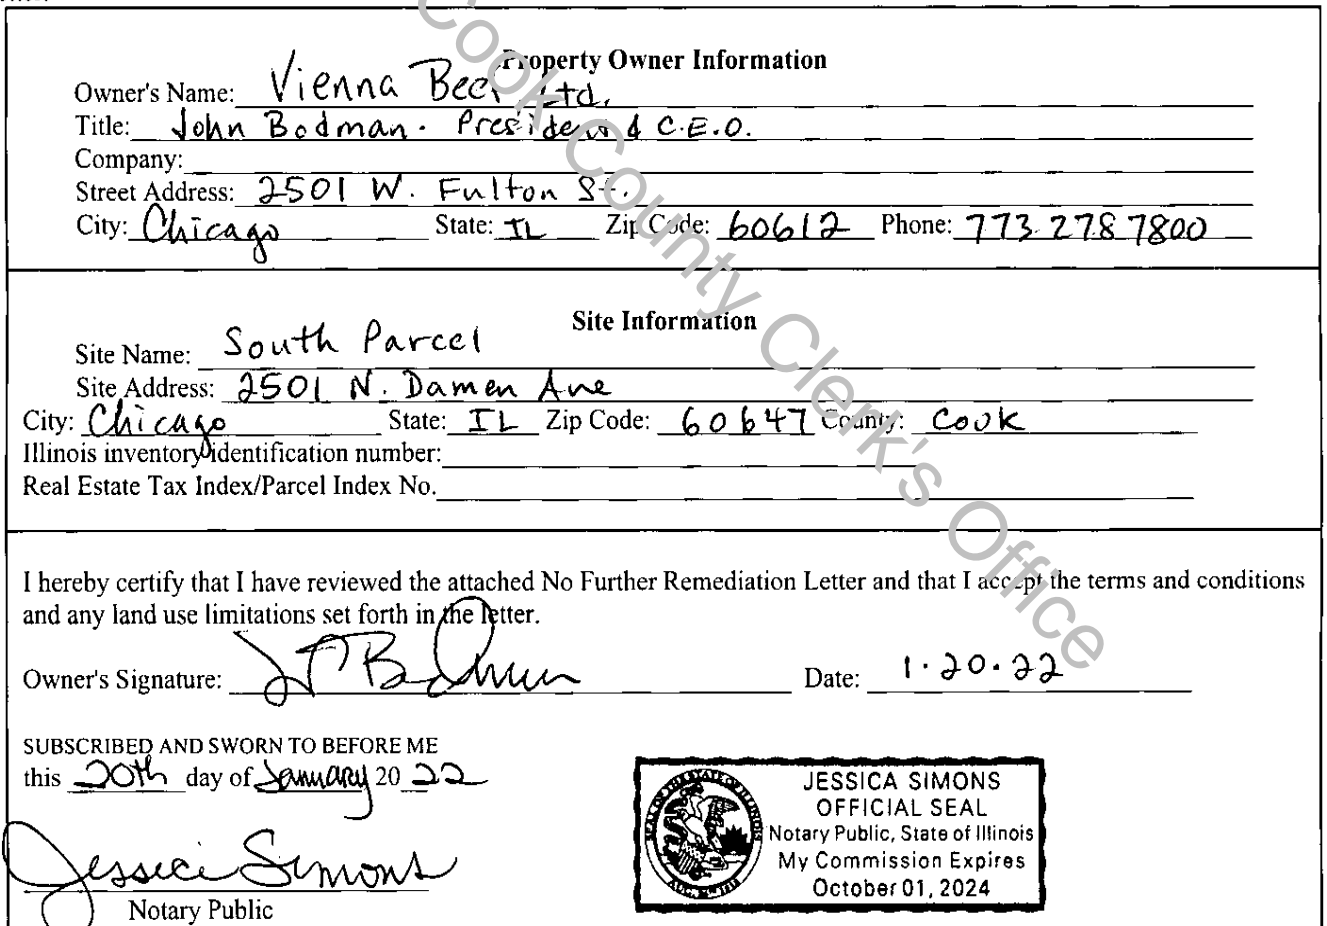 Property Owner Information
Owner's Name: Vienna Beef Ltd.
Title: John Bodman - President & C.E.O.
Company:
Street Address: 2501 W. Fulton St.
City: Chicago State: IL Zip Code: 60612 Phone: 773 278 7800
Site Information
Site Name: South Parcel
Site Address: 2501 N. Damen Ave
City: Chicago State: IL Zip Code: 60647 County: Cook
Illinois inventory identification number:
Real Estate Tax Index/Parcel Index No.
I hereby certify that I have reviewed the attached No Further Remediation Letter and that I accept the terms and conditions
and any land use limitations set forth in the letter.
Owner's Signature: Date: 1.20.22
SUBSCRIBED AND SWORN TO BEFORE ME
this 20th day of January 20 22
Jessica Simons
Notary Public
JESSICA SIMONS
OFFICIAL SEAL
Notary Public, State of Illinois
My Commission Expires
October 01, 2024
SEAL OF THE STATE OF ILLINOIS
AUG. 26TH 1818
Cook County Clerk's Office